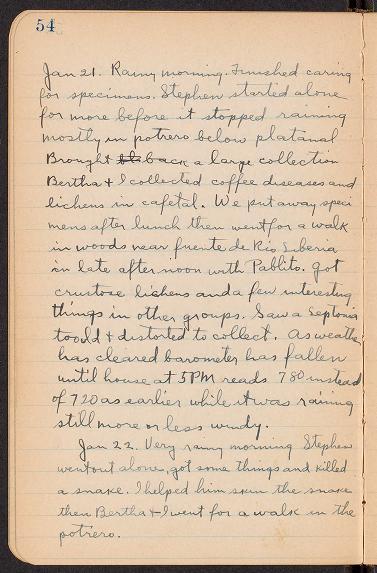 54
Jan 21. Rainy morning. Finished caring
for specimens. Stephen started alone
for more before it stopped raining
mostly in potrero below platanal
Brought back a large collection
Bertha & I collected coffee diseases and
lichens in cafetal. We put away speci
mens after lunch then went for a walk
in woods near fuente de Rio Siberia
in late afternoon with Pablito. got
crustose lichens and a few interesting
things in other groups. Saw a Septoria
too old & distorted to collect. As weather
has cleared barometer has fallen
until house at 5PM reads 780 instead
of 720 as earlier while it was raining
still more or less windy.
Jan 22. Very rainy morning Stephen
went out alone, got some things and killed
a snake. I helped him skin the snake
then Bertha & I went for a walk in the
potrero.